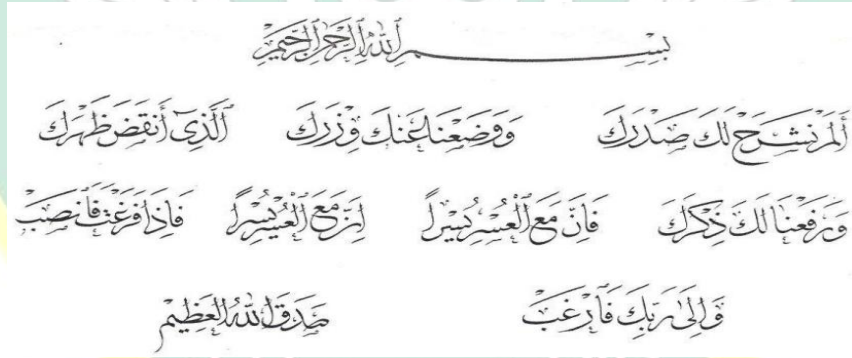 بِسْمِ اللهِ الرَّحْمٰنِ الرَّحِيْمِ
أَلَمْ نَشْرَحْ لَكَ صَدْرَكَ وَوَضَعْنَا عَنكَ وِزْرَكَ الَّذِي أَنقَضَ ظَهْرَكَ
وَرَفَعْنَا لَكَ ذِكْرَكَ فَإِنَّ مَعَ الْعُسْرِ يُسْراً إِنَّ مَعَ الْعُسْرِ يُسْراً فَإِذَا فَرَغْتَ فَانصَبْ
وَإِلَىٰ رَبِّكَ فَارْغَبْ صَدَقَ اللهُ الْعَظِيْمُ